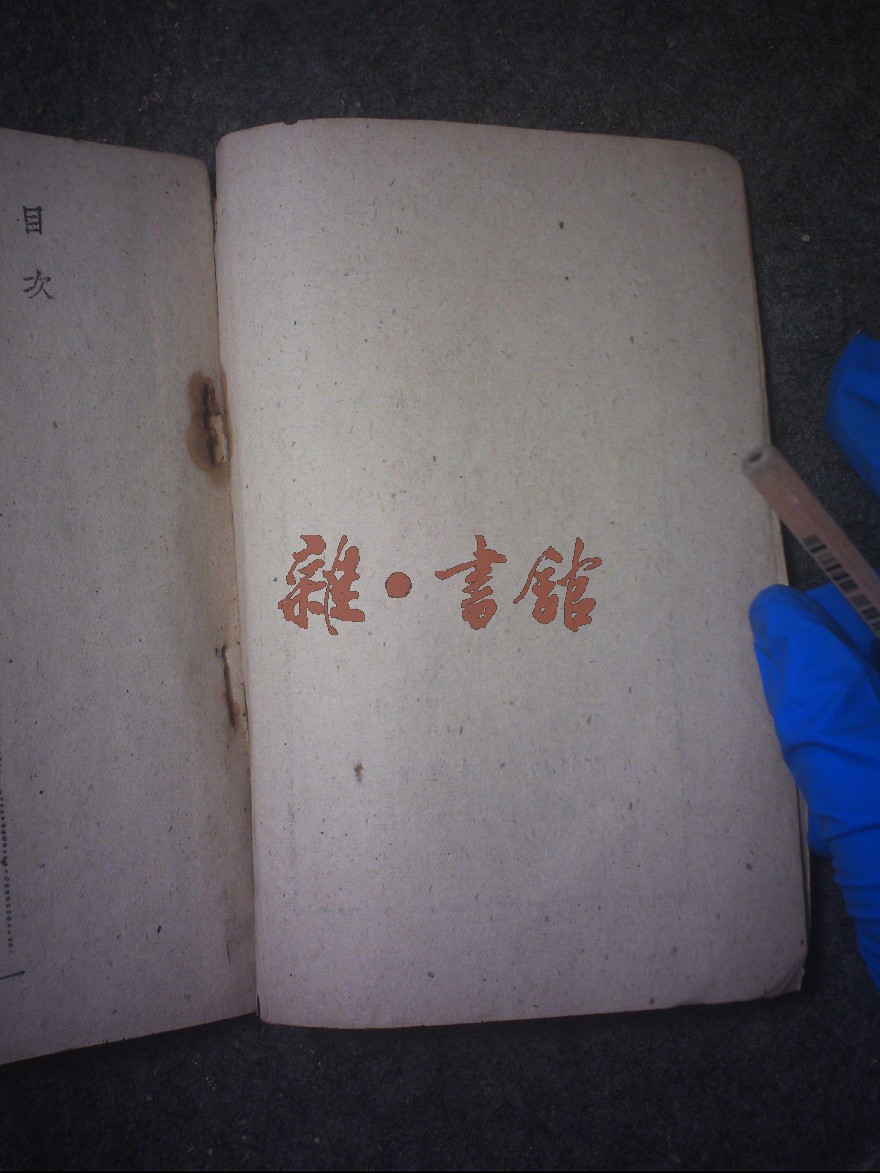 目次
雜·書館